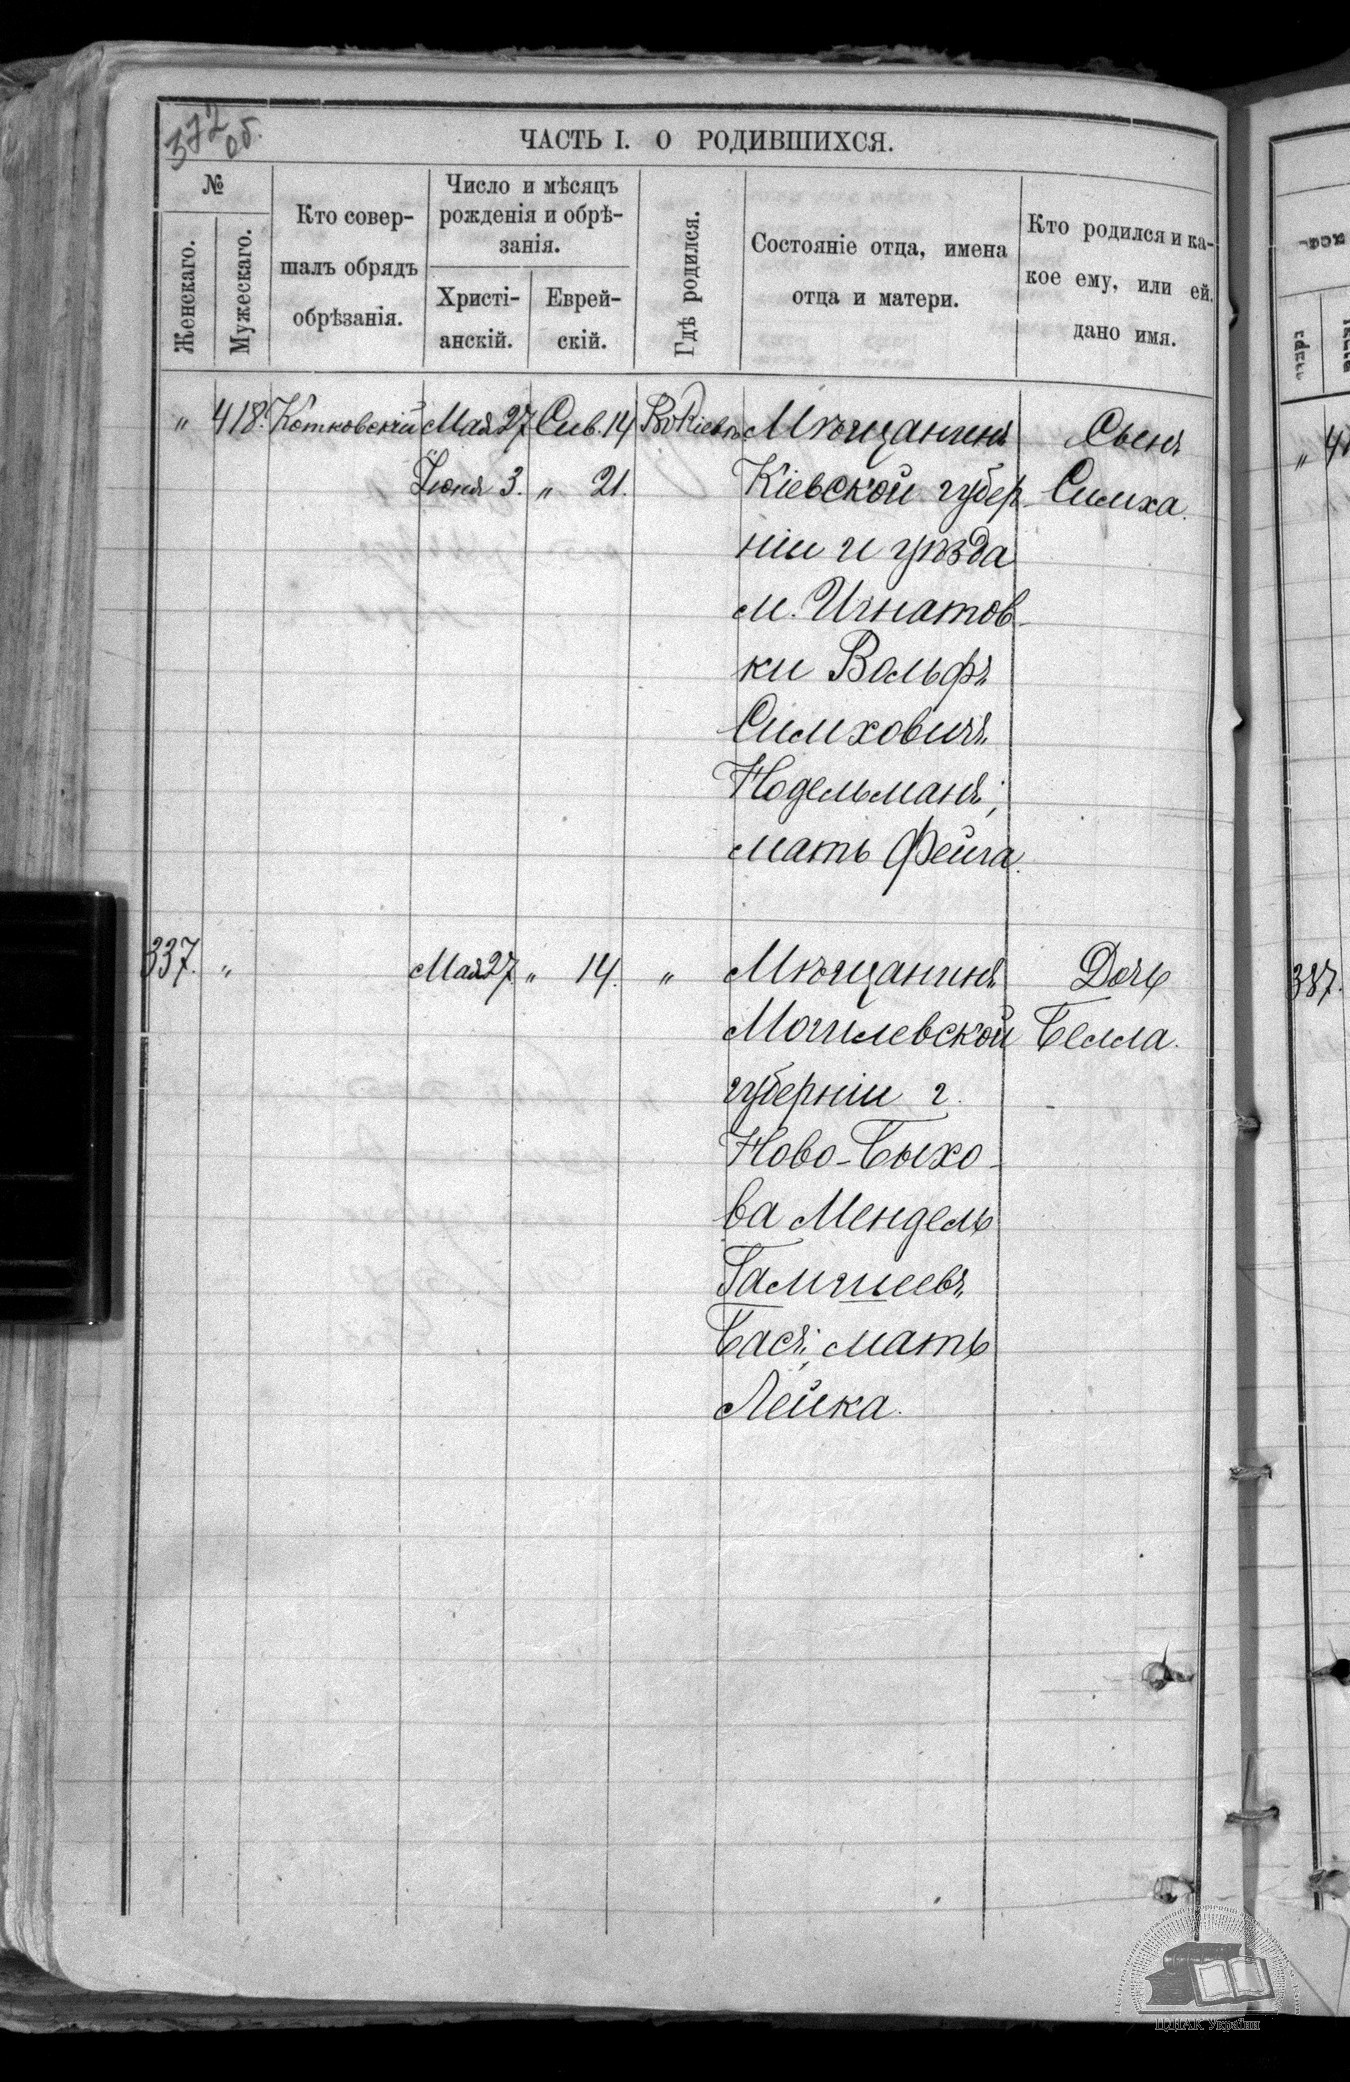 372 об.
ЧАСТЬ I. О РОДИВШИХСЯ.
№
Женскаго.
Мужескаго.
Кто совер-
шалъ обрядъ
обрѣзанія.
Число и мѣсяцъ
рожденія и обрѣ-
занія.
Христі-
анскій.
Еврей-
скій.
Гдѣ родился.
Состояніе отца, имена
отца и матери.
Кто родился и ка-
кое ему, или ей,
дано имя.
„ 418. Котковскій Мая 27 Сив. 14 Въ Кіевѣ Мѣщанинъ Сынъ
Іюня 3. „ 21. Кіевской губер- Симха.
ніи и уѣзда
м. Игнатов-
ки Вольфъ
Симховичъ
Нодельманъ;
мать Фейга.
337. „ Мая 27 „ 14. „ Мѣщанинъ Дочь
Могилевской Белла.
губерніи г.
Ново-Быхо-
ва Мендель
Гамшеевъ
Басъ; мать
Лейка.
„
337.
ЦДІАК України